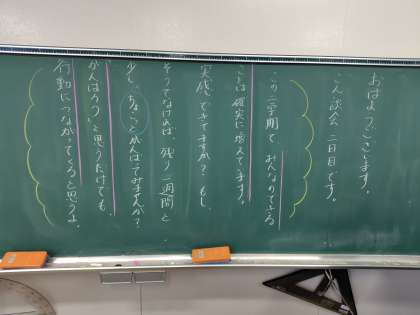 おはようございます。
こん談会 二日目です。
この二学期で みんなのできる
ことは確実に増えてます。
実感、できてますか？もし
そうでなければ 残り 二週間と
少し、ちょこっとがんばってみませんか？
がんばろうと思うだけでも、
行動につながってくると思うよ。